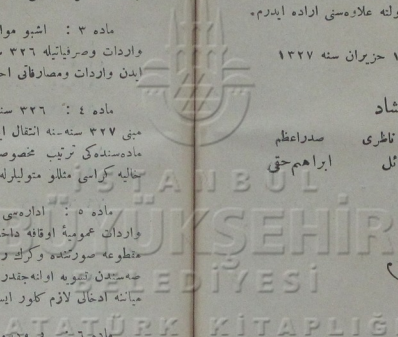 ولنه علاوه‌سنی اراده ایدرم.
حزیران سنه ١٣٢٧
شاد
ناظری صدراعظم
ئل ابراهیم حقی
ماده ٣ : اشبو موا
واردات وصرفیاتیله ٣٢٦
ایدن واردات ومصارفاتی اح
ماده ٤ : ٣٢٦ سنه
مبنی ٣٢٧ سنه‌سنه انتقال ا
ماده‌سنده‌کی ترتیب مخصوص
خالیه کراسی مثللو متولیلرله
ماده ٥ : اداره‌سی
واردات عمومیهٔ اوقافه داخ
مقطوعه صورتنده وکرك ر
صه‌سندن تسویه اولنه‌جقدر
میاننه ادخالی لازم کلور ایس
İSTANBUL
BÜYÜKŞEHİR
BELEDİYESİ
ATATÜRK KİTAPLIĞI